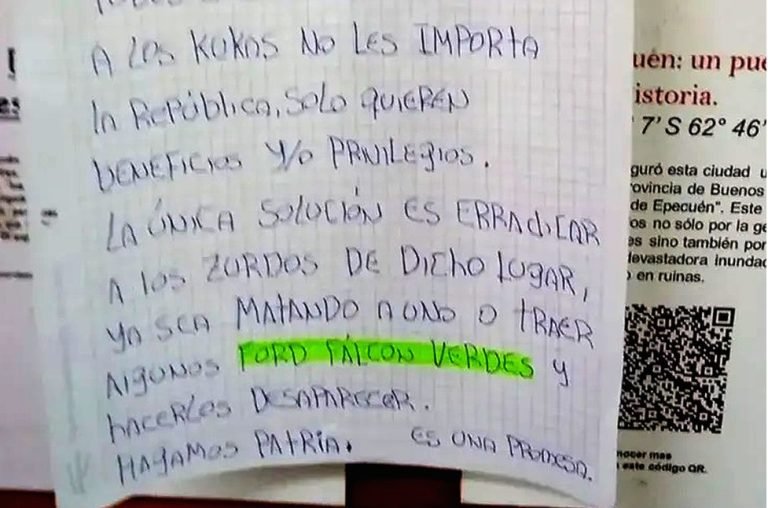 A LOS KUKAS NO LES IMPORTA
la REPÚBlicA, SOLO QUIEREN
BENEFICIOS Y/O PRIVILEGIOS.
LA ÚNICA SOLUCIÓN ES ERRADICAR
A los ZURDOS DE DICHO LUGAR,
YA SEA MATANDO A UNO O TRAER
ALGUNOS FORD FÁLCON VERDES Y
HACERLOS DESAPARECER.
HAGAMOS PATRIA. ES UNA PROMESA.
uén: un pue
istoria.
7' S 62° 46'
guró esta ciudad u
rovincia de Buenos
de Epecuén". Este
os no sólo por la ge
es sino también por
devastadora inundac
en ruinas.
nocer mas
este código QR.